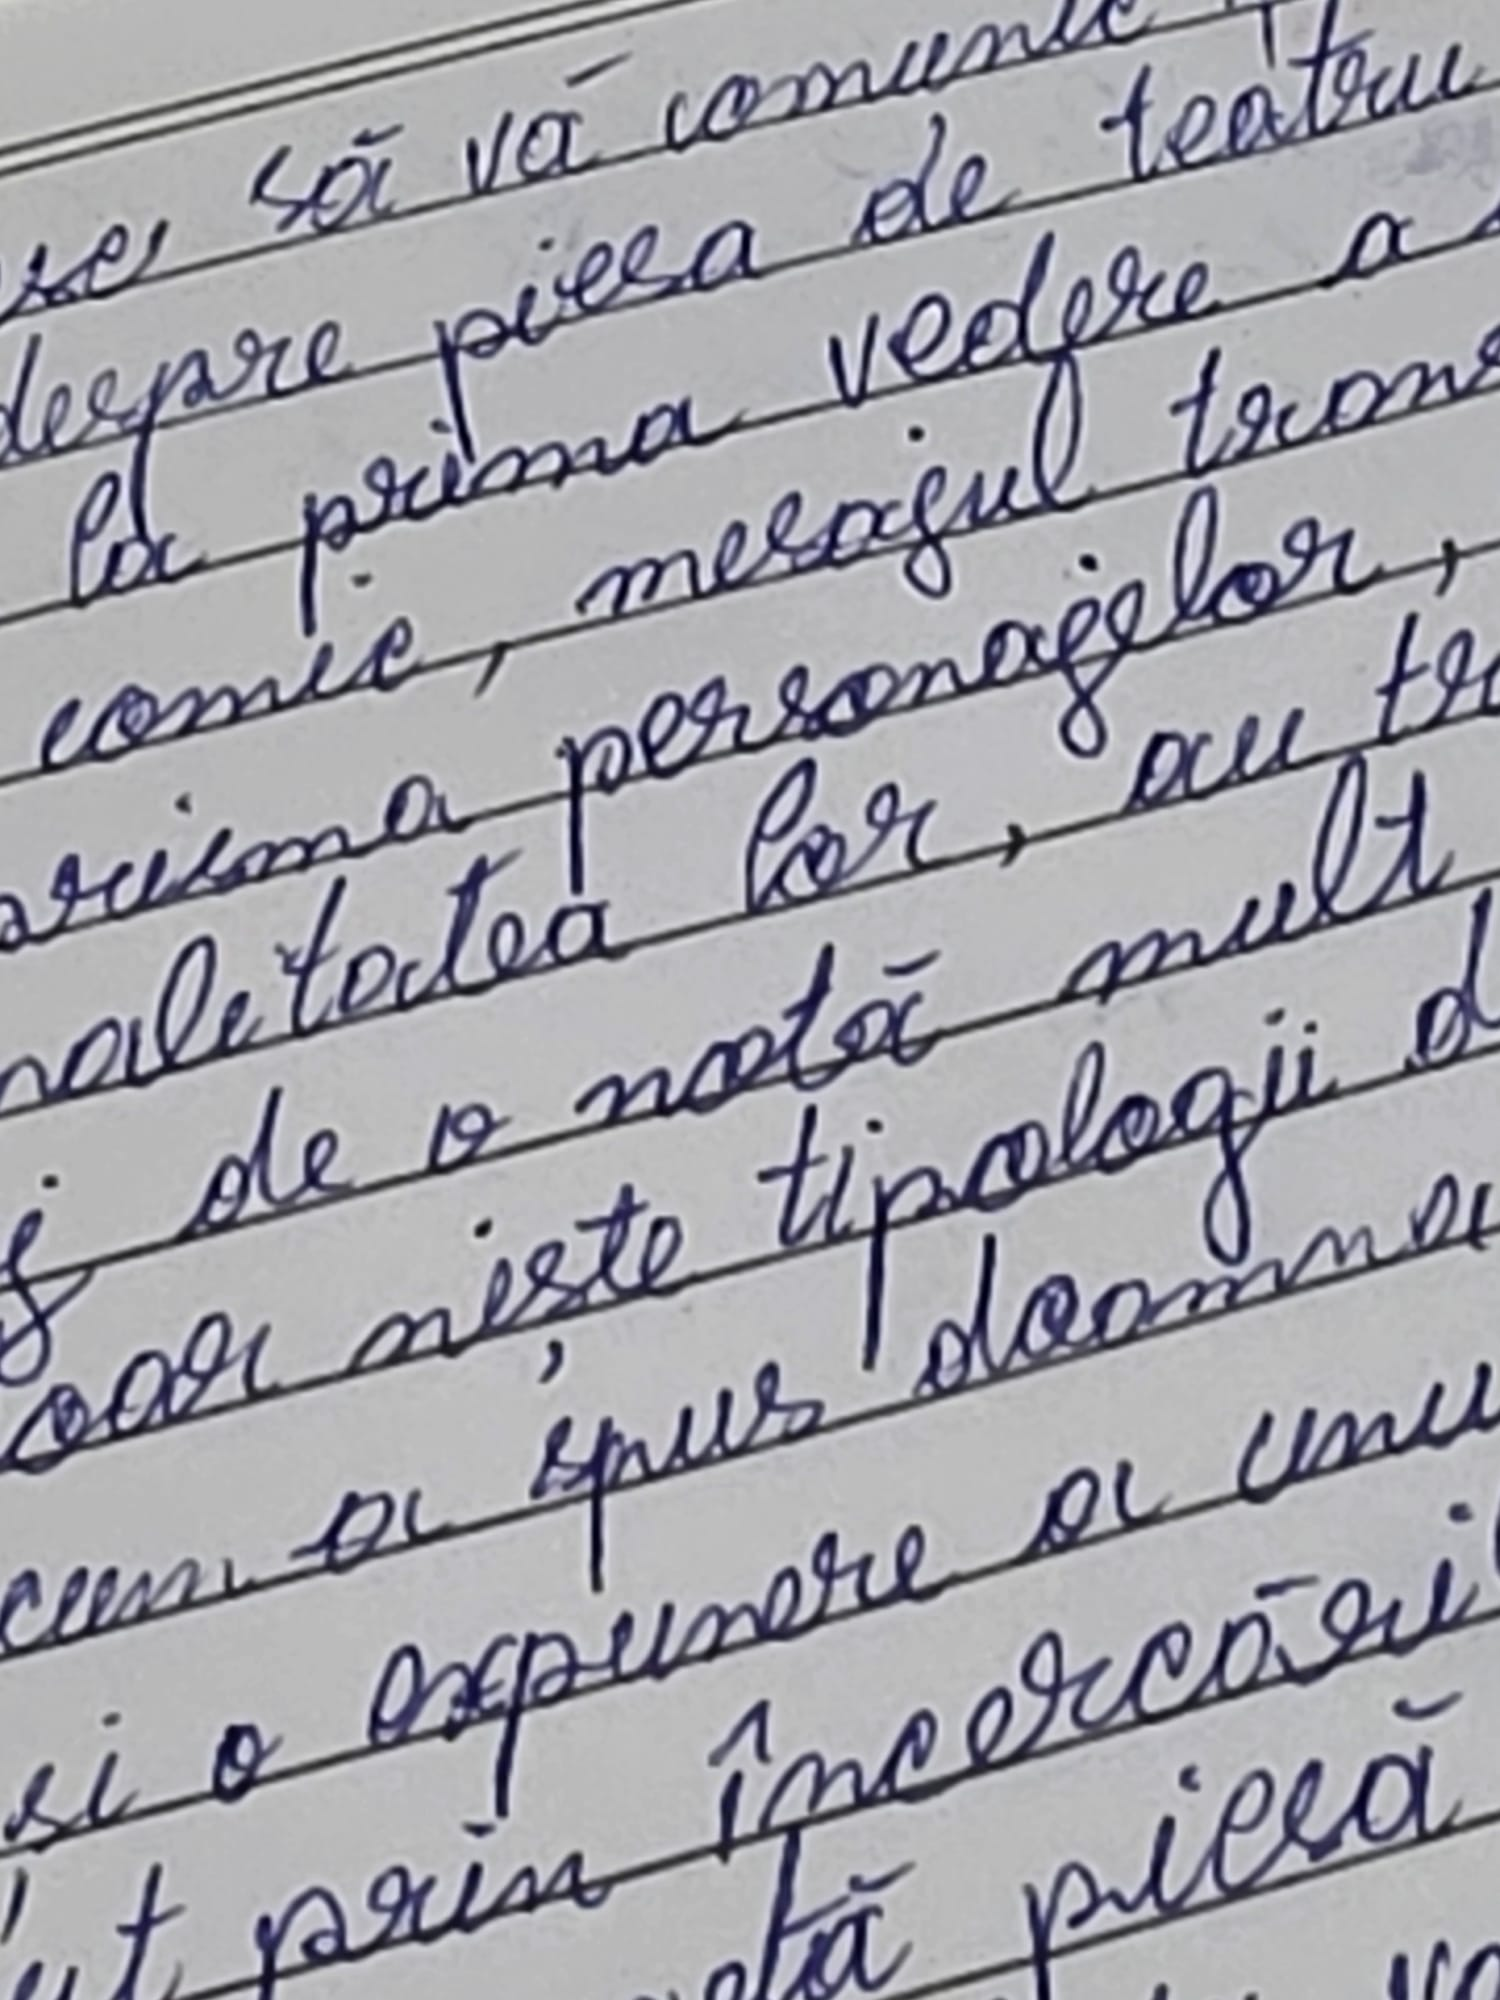 să vă comunic
despre piesa de teatru
la prima vedere a
comic, mesajul trans
prisma personajelor,
nalitatea lor, au tr
j de o notă mult
doar niște tipologii d
cum a spus doamna
si o expunere a unu
ut prin încercăril
piesă